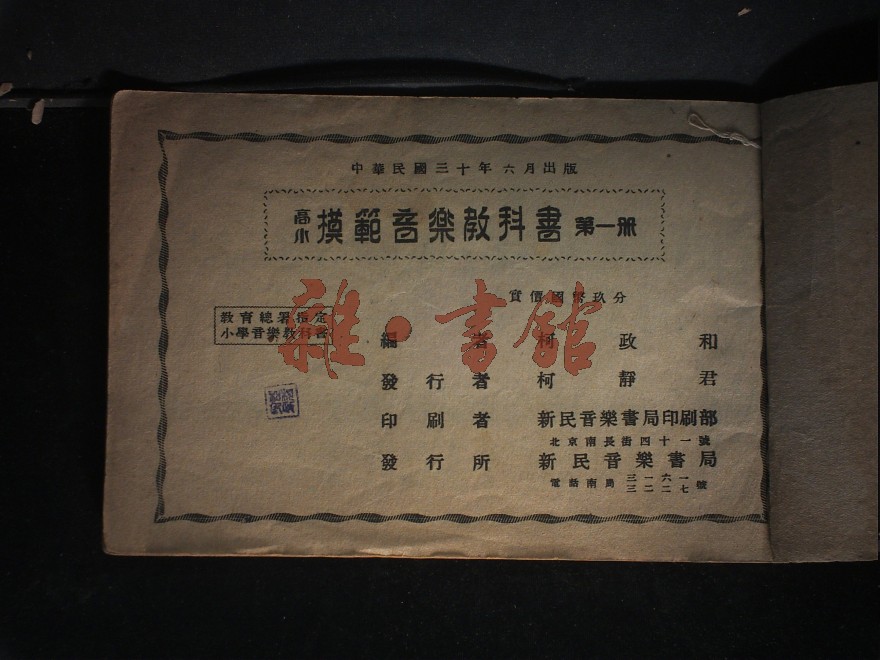 中華民國三十年六月出版
高小 摸範音樂教科書 第一册
實價國幣玖分
教育總署指定
小學音樂教科書
編著 柯政和
發行者 柯靜君
印刷者 新民音樂書局印刷部
北京南長街四十一號
發行所 新民音樂書局
電話南局 三一六一 三二二七 號
雜·書館